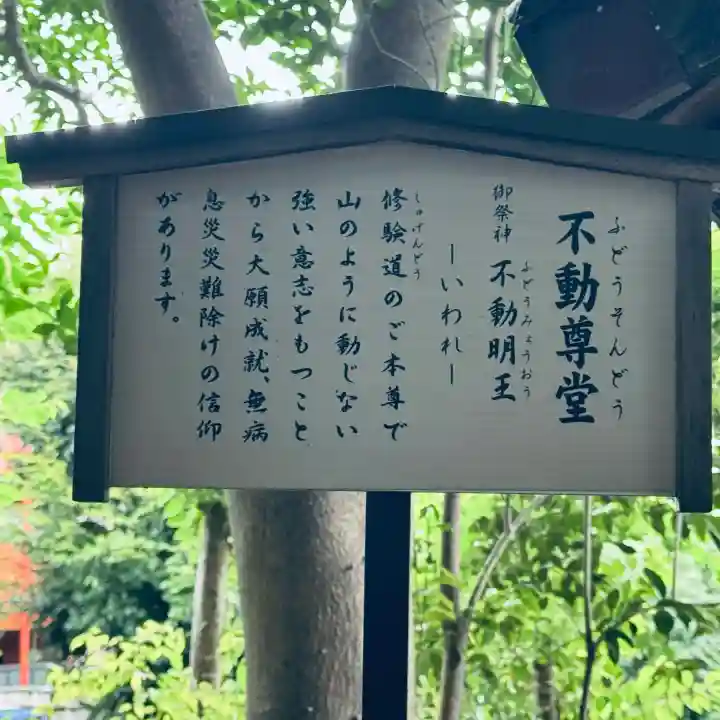 不動尊堂
ふどうそんどう
御祭神 不動明王
ふどうみょうおう
ーいわれー
修験道のご本尊で
しゅげんどう
山のように動じない
強い意志をもつこと
から大願成就、無病
息災災難除けの信仰
があります。